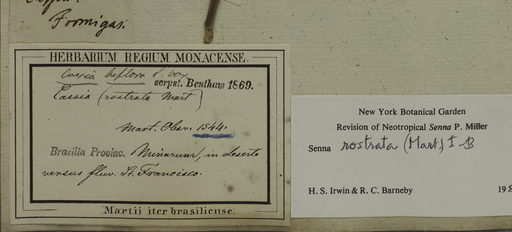 Formigas.
HERBARIUM REGIUM MONACENSE.
Cassia biflora L. var
scrpst. Bentham 1869.
Cassia (rostrata Mart)
Mart. Obs. 1844.
Brasilia Provinc. Minarum, in deserto
versus fluv. St. Francisco.
Martii iter brasiliense.
New York Botanical Garden
Revision of Neotropical Senna P. Miller
Senna rostrata (Mart) I-B
H. S. Irwin & R. C. Barneby 198